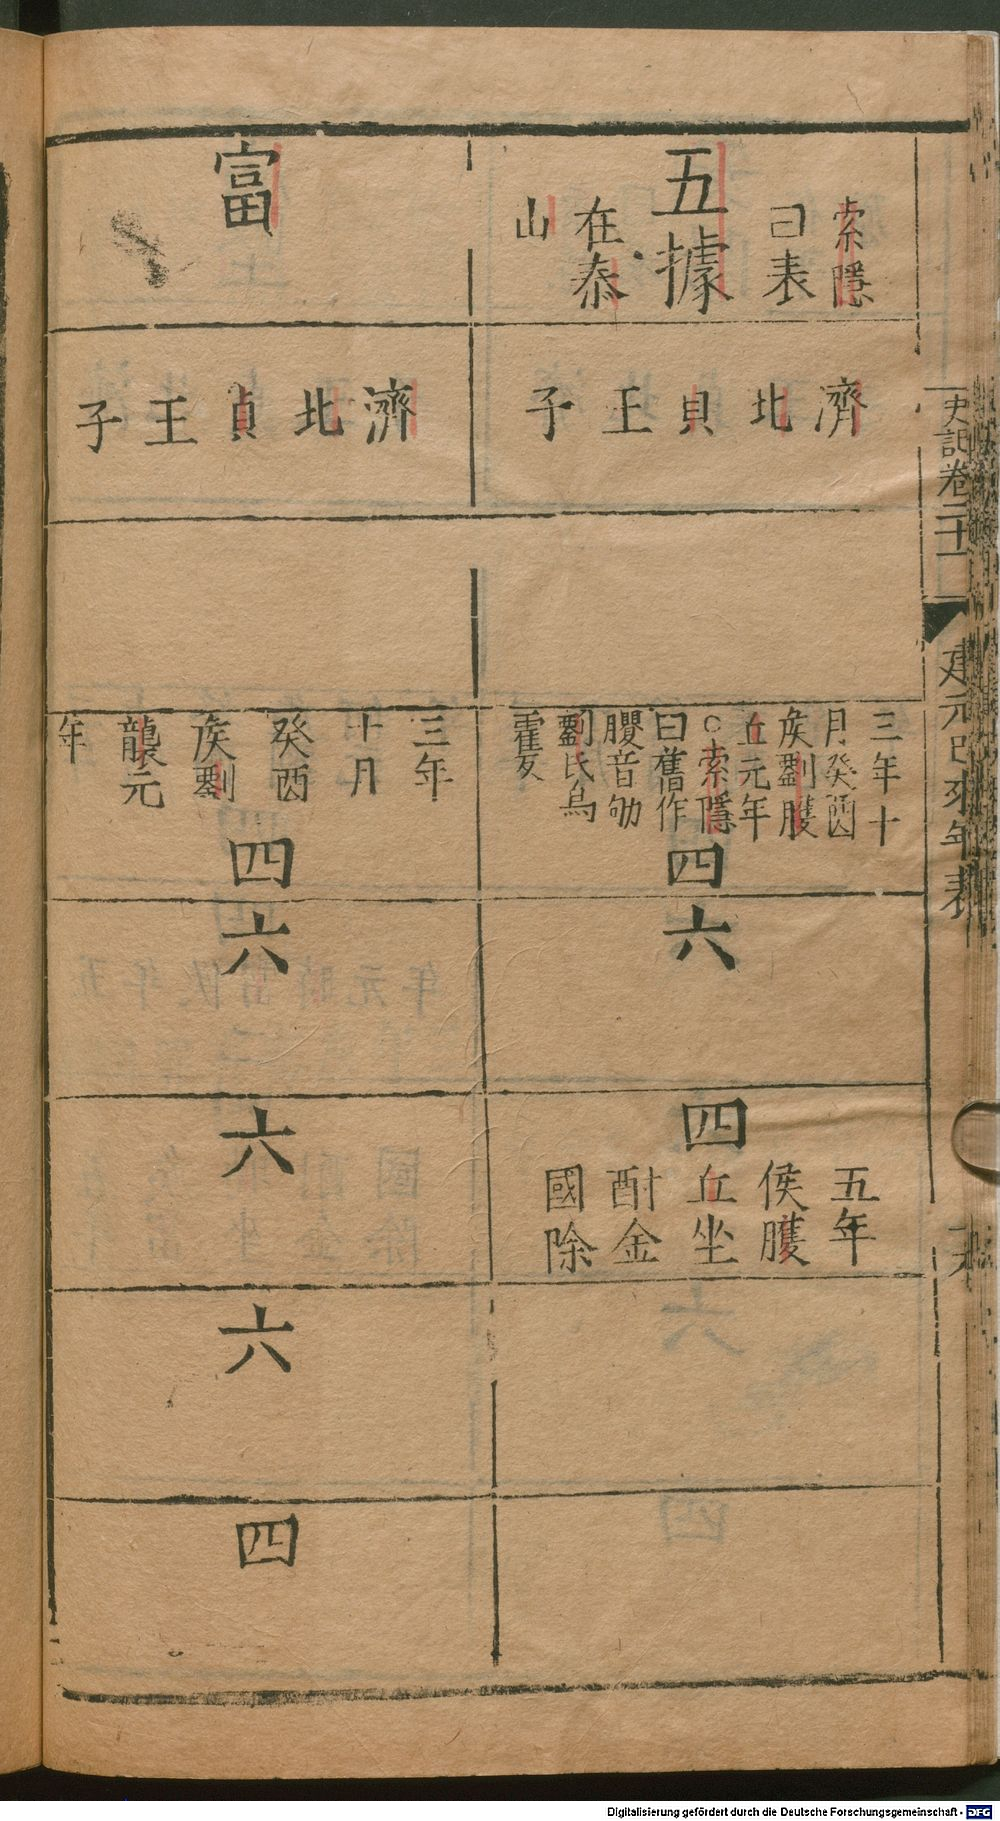 史記卷二十一
建元已來年表
索隱
曰表
五據
在泰
山
濟北貞王子
三年十
月癸酉
矦劉臒
丘元年
○索隱
曰舊作
臞音劬
劉氏烏
霍反
四
六
四
五年
侯臒
丘坐
酎金
國除
富
濟北貞王子
三年
十月
癸酉
矦劉
襲元
年
四
六
六
六
四
Digitalisierung gefördert durch die Deutsche Forschungsgemeinschaft - DFG